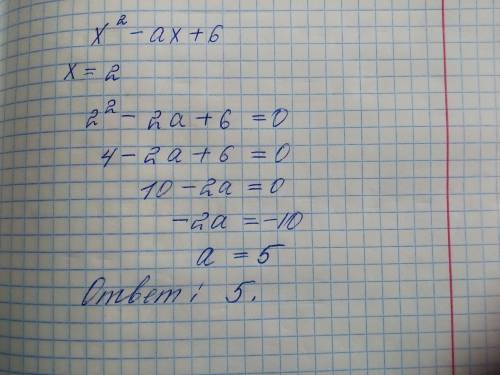 x² - ax + 6
x = 2
2² - 2a + 6 = 0
4 - 2a + 6 = 0
10 - 2a = 0
-2a = -10
a = 5
Ответ: 5.